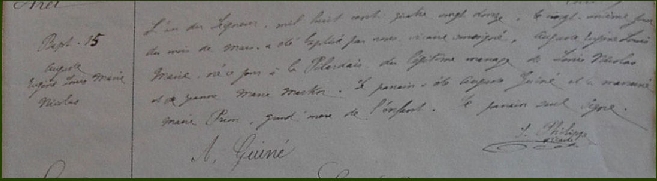 Bapt. 15
Auguste
Eugène Louis Marie
Nicolas
L'an du Seigneur mil huit cent quatre vingt onze, le vingt unième jour
du mois de Mars a été baptisé par nous vicaire soussigné, Auguste Eugène Louis
Marie, né ce jour à la du légitime mariage de Louis Nicolas
et de Jeanne Marie . Le parrain a été Auguste Guiné et la marraine
Marie , grand mère de l'enfant. Le parrain seul signe.
A. Guiné
L. Philippe